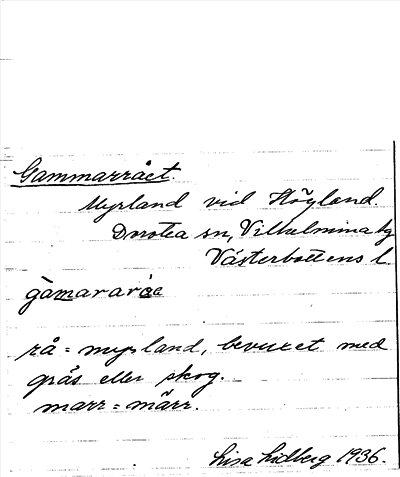 Gammarrået.
Myrland vid Högland
Dorotea sn, Vilhelmina tg
Västerbottens l.
rå = myrland, bevuxet med
gräs eller skog.
marr = märr.
Lisa Lidberg 1936.